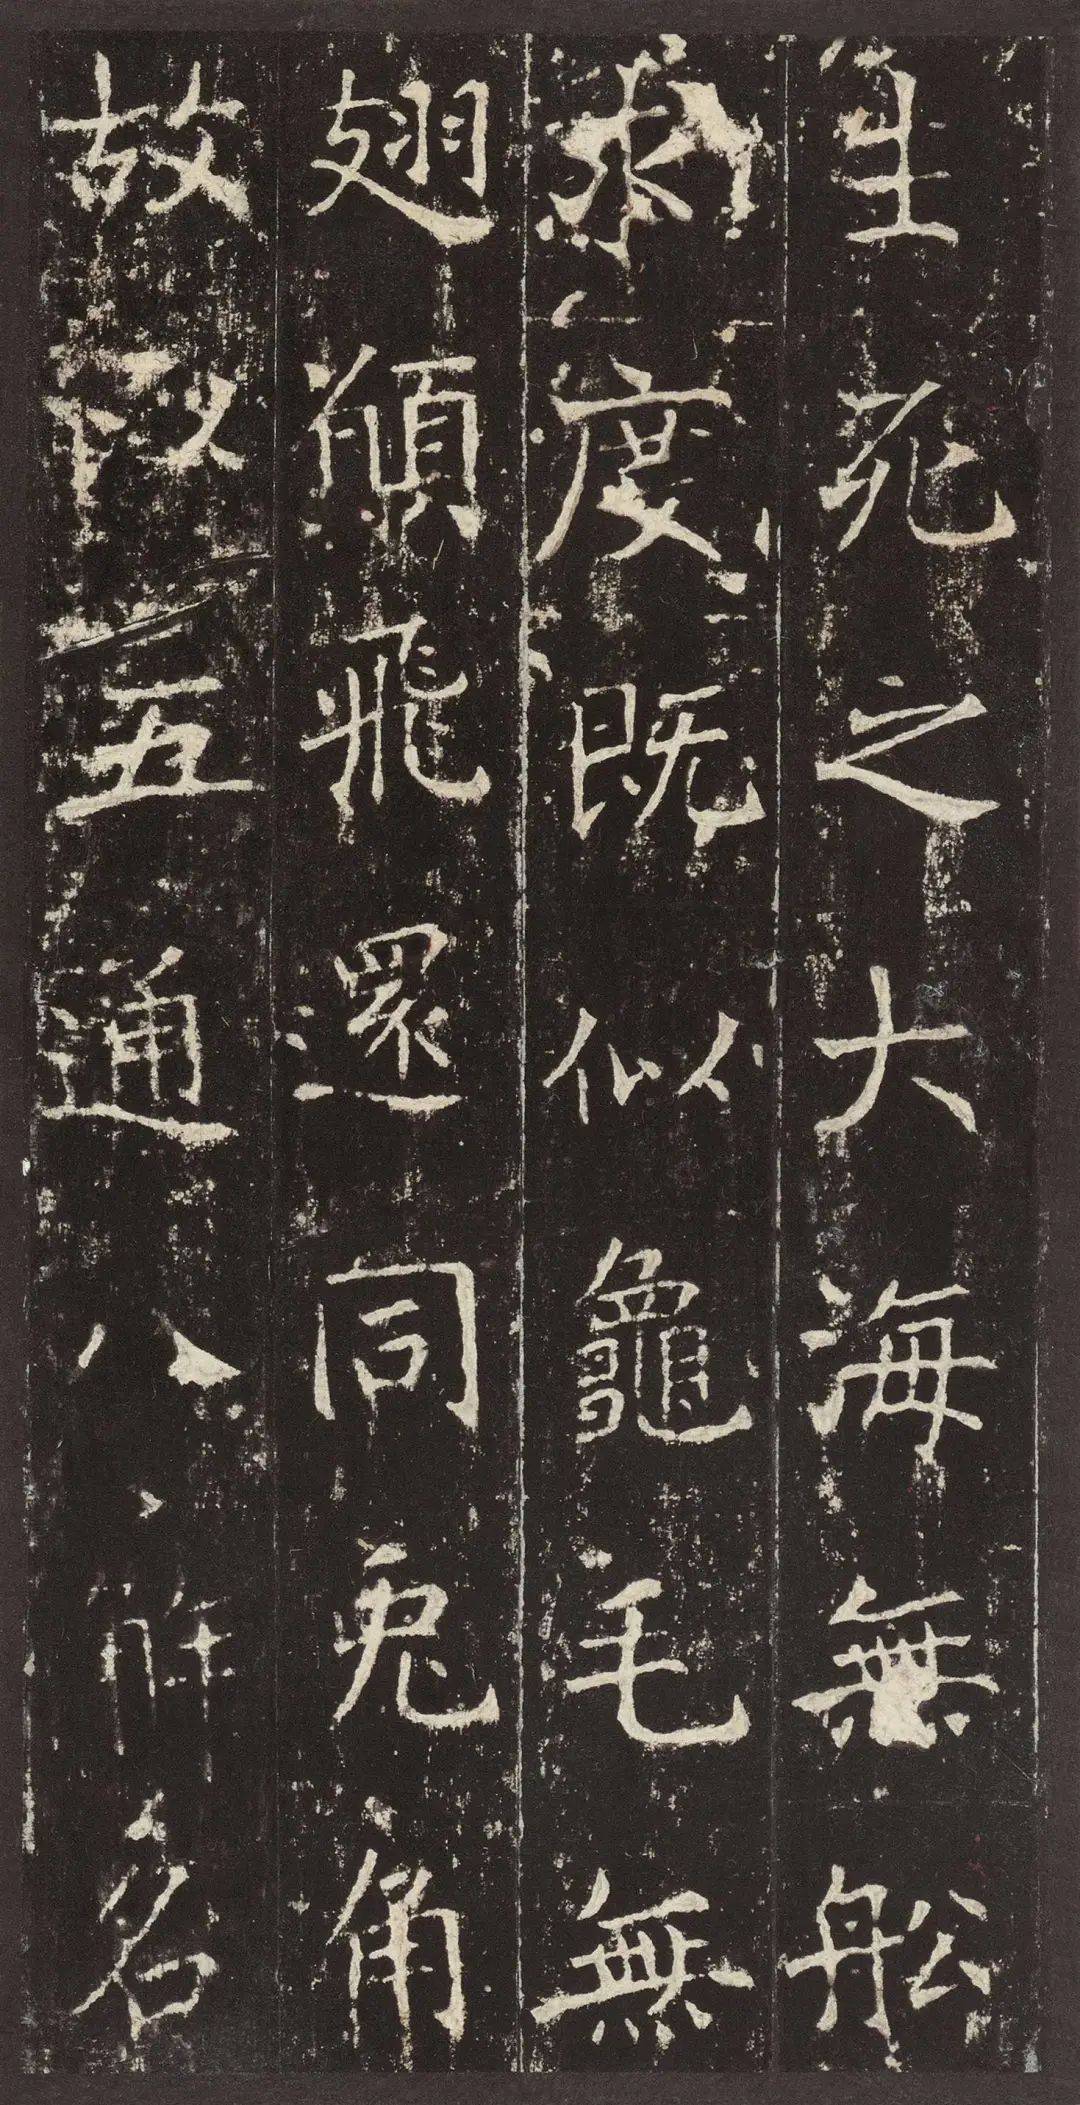 生死之大海無舩
求度既似龜毛無
翅願飛還同兔角
故五通八解名